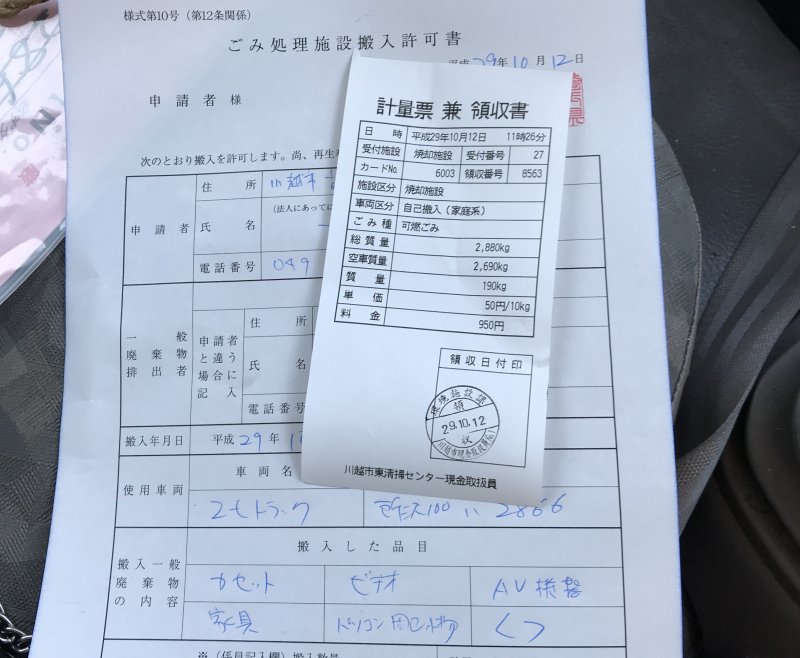 様式第10号（第12条関係）
ごみ処理施設搬入許可書
29年10月12日
申請者様
次のとおり搬入を許可します。尚、再生
申請者
住所 川越市
（法人にあっては
氏名
電話番号 049
一般廃棄物排出者
申請者と違う場合に記入
住所
氏名
電話番号
搬入年月日 平成29年1
使用車両
車両名
2tトラック
100 い 2866
搬入一般廃棄物の内容
搬入した品目
カセット ビデオ AV機器
家具 パソコン周辺物 くつ
※（係員記入欄）搬入数量
計量票 兼 領収書
日時 平成29年10月12日 11時26分
受付施設 焼却施設 受付番号 27
カードNo. 6003 領収番号 8563
施設区分 焼却施設
車両区分 自己搬入（家庭系）
ごみ種 可燃ごみ
総質量 2,880kg
空車質量 2,690kg
質量 190kg
単価 50円/10kg
料金 950円
領収日付印
環境施設課
領
29.10.12
収
川越市東清掃センター現金取扱員